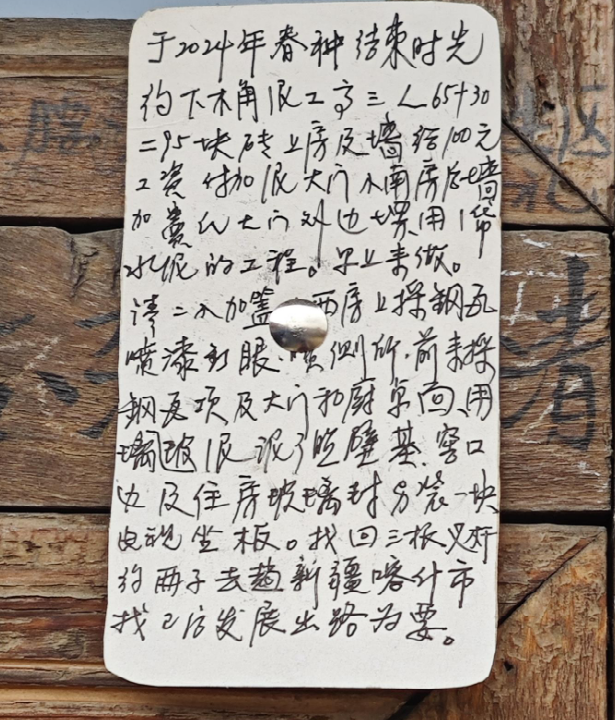 于2024年春种结束时先
约下木角泥工高三人65+30
=95块砖上房及墙给100元
工资付加泥大门外南房后墙
加大门对边墙用1袋
水泥的工程。早上来做。
请二人加盖西房上探钢瓦
喷漆打眼侧所.前来探
钢瓦项及大门和厨桌面,用
璃玻泥泥了壁基.窑口
边及住房玻璃封另袋一块
电视坐板。找回三根叉杆
约两子去趟新疆喀什市
找工访发展出路为要。